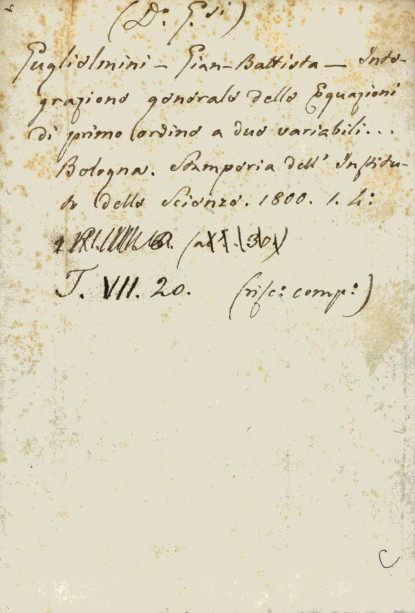 (D.º G.si)
Guglielmini - Gian-Battista - Inte-
grazione generale delle Equazioni
di primo ordine a due variabili...
Bologna. Stamperia dell' Institu-
to delle Scienze. 1800. 1. 4:
T. VII. 20. (risc: comp:)